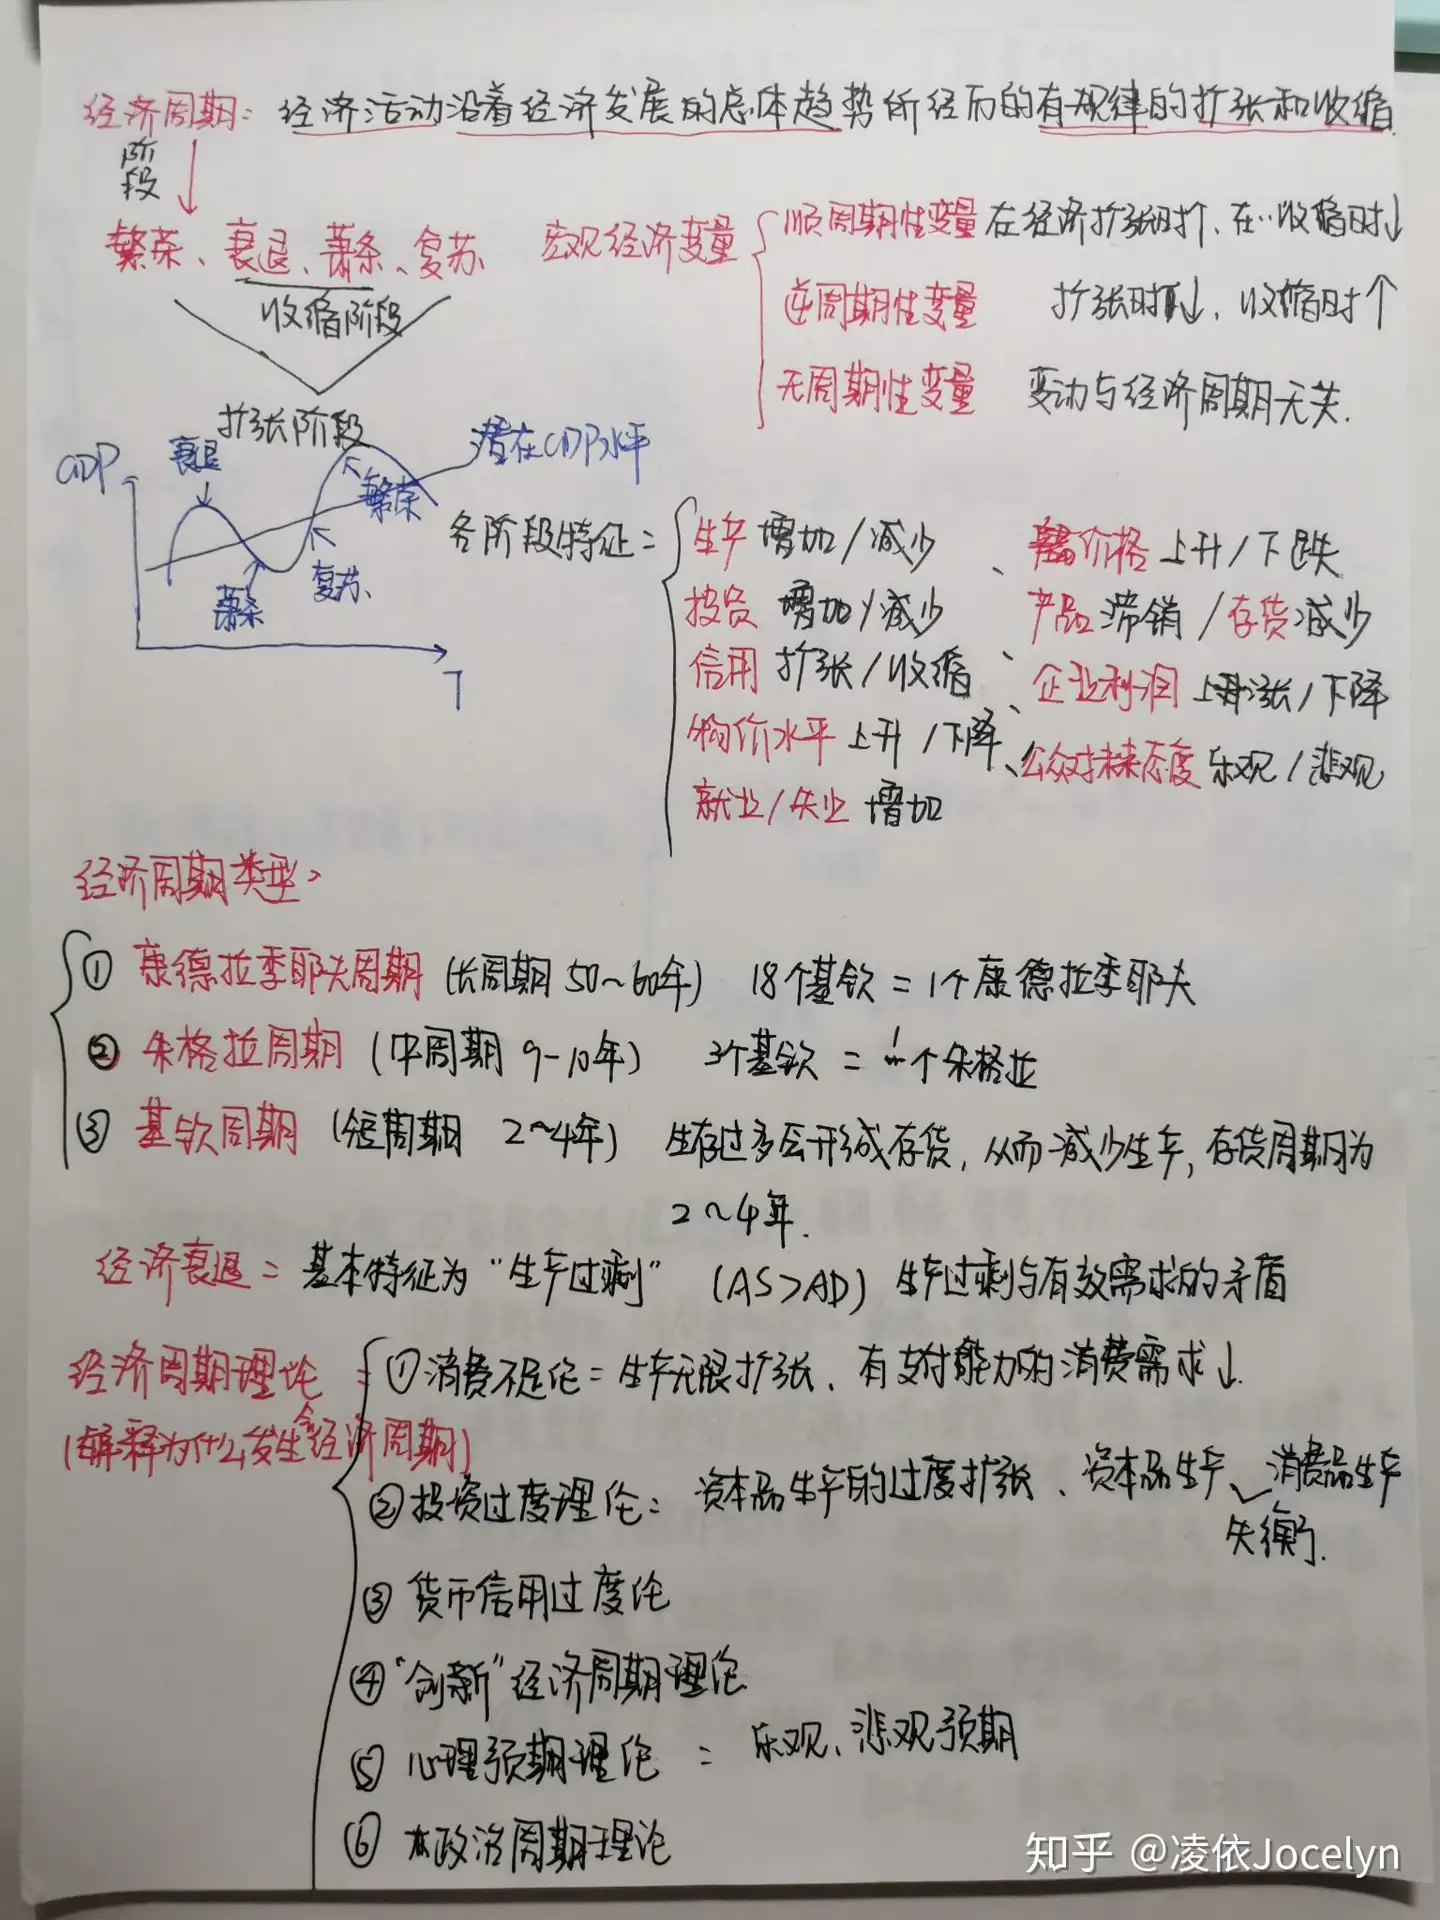 经济周期：经济活动沿着经济发展的总体趋势所经历的有规律的扩张和收缩.
阶段
繁荣、衰退、萧条、复苏
收缩阶段
扩张阶段
宏观经济变量
顺周期性变量 在经济扩张时↑、在…收缩时↓
逆周期性变量 扩张时↓、收缩时↑
无周期性变量 变动与经济周期无关.
GDP
衰退
潜在GDP水平
繁荣
萧条
复苏
T
各阶段特征：
生产 增加/减少、 价格 上升/下跌
投资 增加/减少 产品 滞销/存货减少
信用 扩张/收缩、 企业利润 上涨/下降
物价水平 上升/下降、 公众对未来态度 乐观/悲观
就业/失业 增加
经济周期类型：
① 康德拉季耶夫周期 (长周期 50~60年) 18个基钦 = 1个康德拉季耶夫
② 朱格拉周期 (中周期 9-10年) 3个基钦 = 1个朱格拉
③ 基钦周期 (短周期 2~4年) 生存过多会形成存货, 从而减少生产, 存货周期为
2~4年.
经济衰退 = 基本特征为“生产过剩” (AS>AD) 生产过剩与有效需求的矛盾
经济周期理论：
(解释为什么会发生经济周期)
① 消费不足论 = 生产无限扩张、有支付能力的消费需求↓.
② 投资过度理论：资本品生产的过度扩张、资本品生产 消费品生产
失衡.
③ 货币信用过度论
④ “创新”经济周期理论
⑤ 心理预期理论 = 乐观、悲观预期
⑥ 政治周期理论
知乎 @凌依Jocelyn